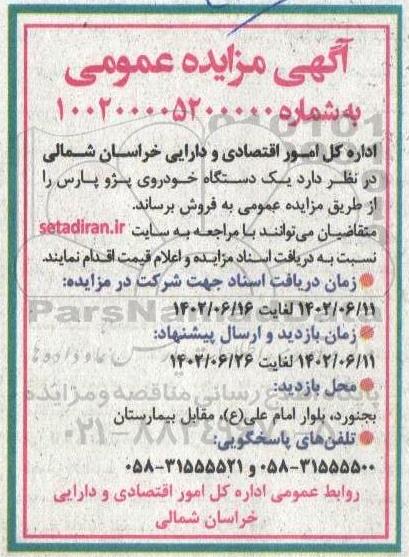 آگهی مزایده عمومی
به شماره ۱۰۰۲۰۰۰۰۰۵۲۰۰۰۰۰۰
اداره کل امور اقتصادی و دارایی خراسان شمالی
در نظر دارد یک دستگاه خودروی پژو پارس را
از طریق مزایده عمومی به فروش برساند.
متقاضیان می‌توانند با مراجعه به سایت setadiran.ir
نسبت به دریافت اسناد مزایده و اعلام قیمت اقدام نمایند.
زمان دریافت اسناد جهت شرکت در مزایده:
۱۴۰۲/۰۶/۱۱ لغایت ۱۴۰۲/۰۶/۱۶
زمان بازدید و ارسال پیشنهاد:
۱۴۰۲/۰۶/۱۱ لغایت ۱۴۰۲/۰۶/۲۶
محل بازدید:
بجنورد، بلوار امام علی(ع)، مقابل بیمارستان
تلفن‌های پاسخگویی:
۰۵۸-۳۱۵۵۵۵۰۰ و ۰۵۸-۳۱۵۵۵۵۲۱
روابط عمومی اداره کل امور اقتصادی و دارایی
خراسان شمالی